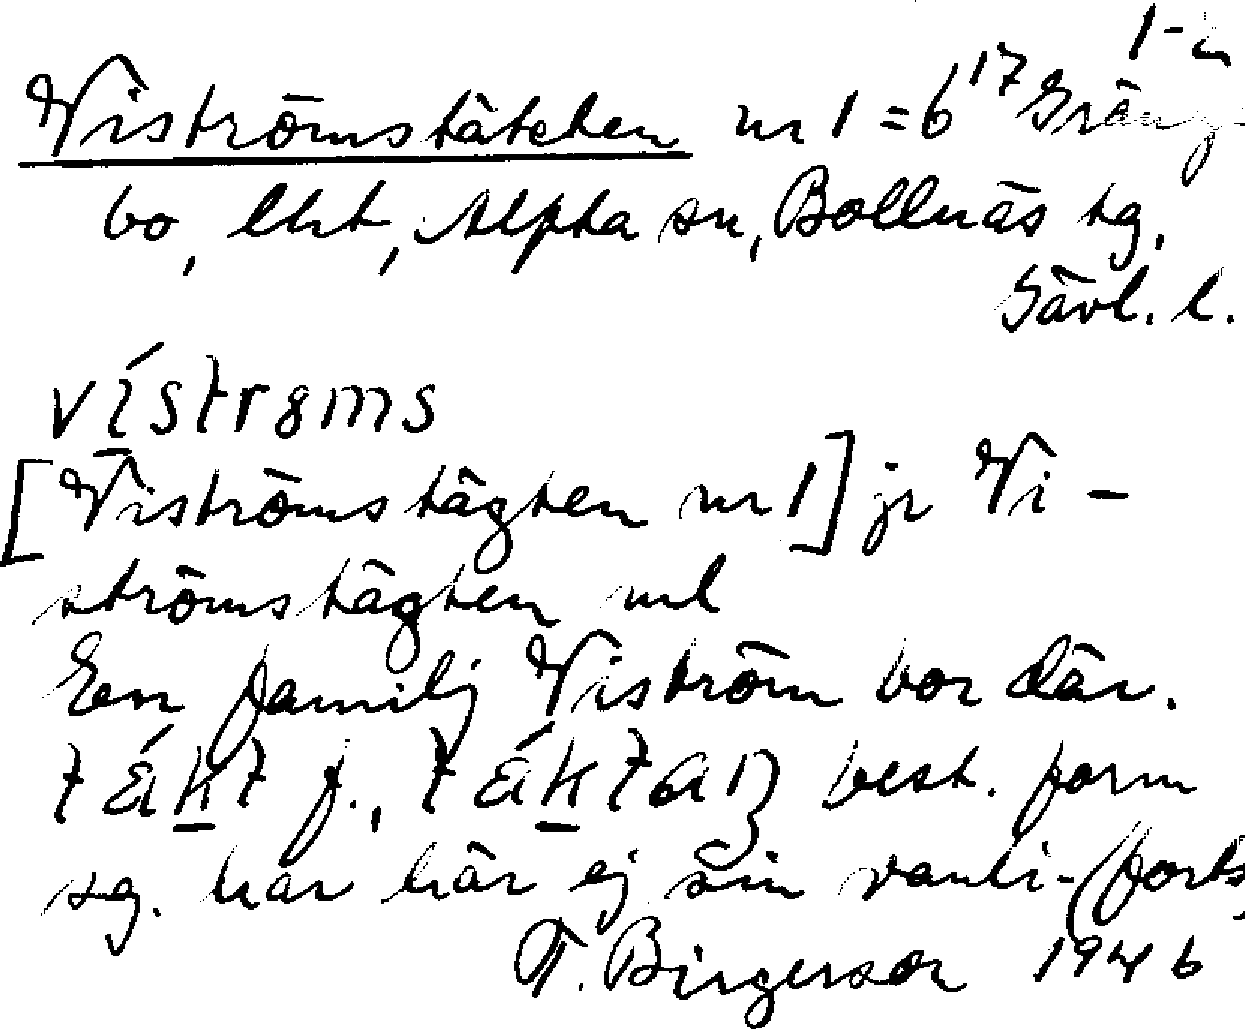 1-2
Viströmstäkten nr 1 = 6¹⁷ Gräng-
bo, lht, Alfta sn, Bollnäs tg,
Gävl. l.
vístrøms
[Viströmstägten nr 1] jr Vi-
strömstägten ml
En familj Viström bor där.
tǽkt f., tǽktan best. form
sg. har här ej sin vanli- (forts.
T. Birgerson 1946